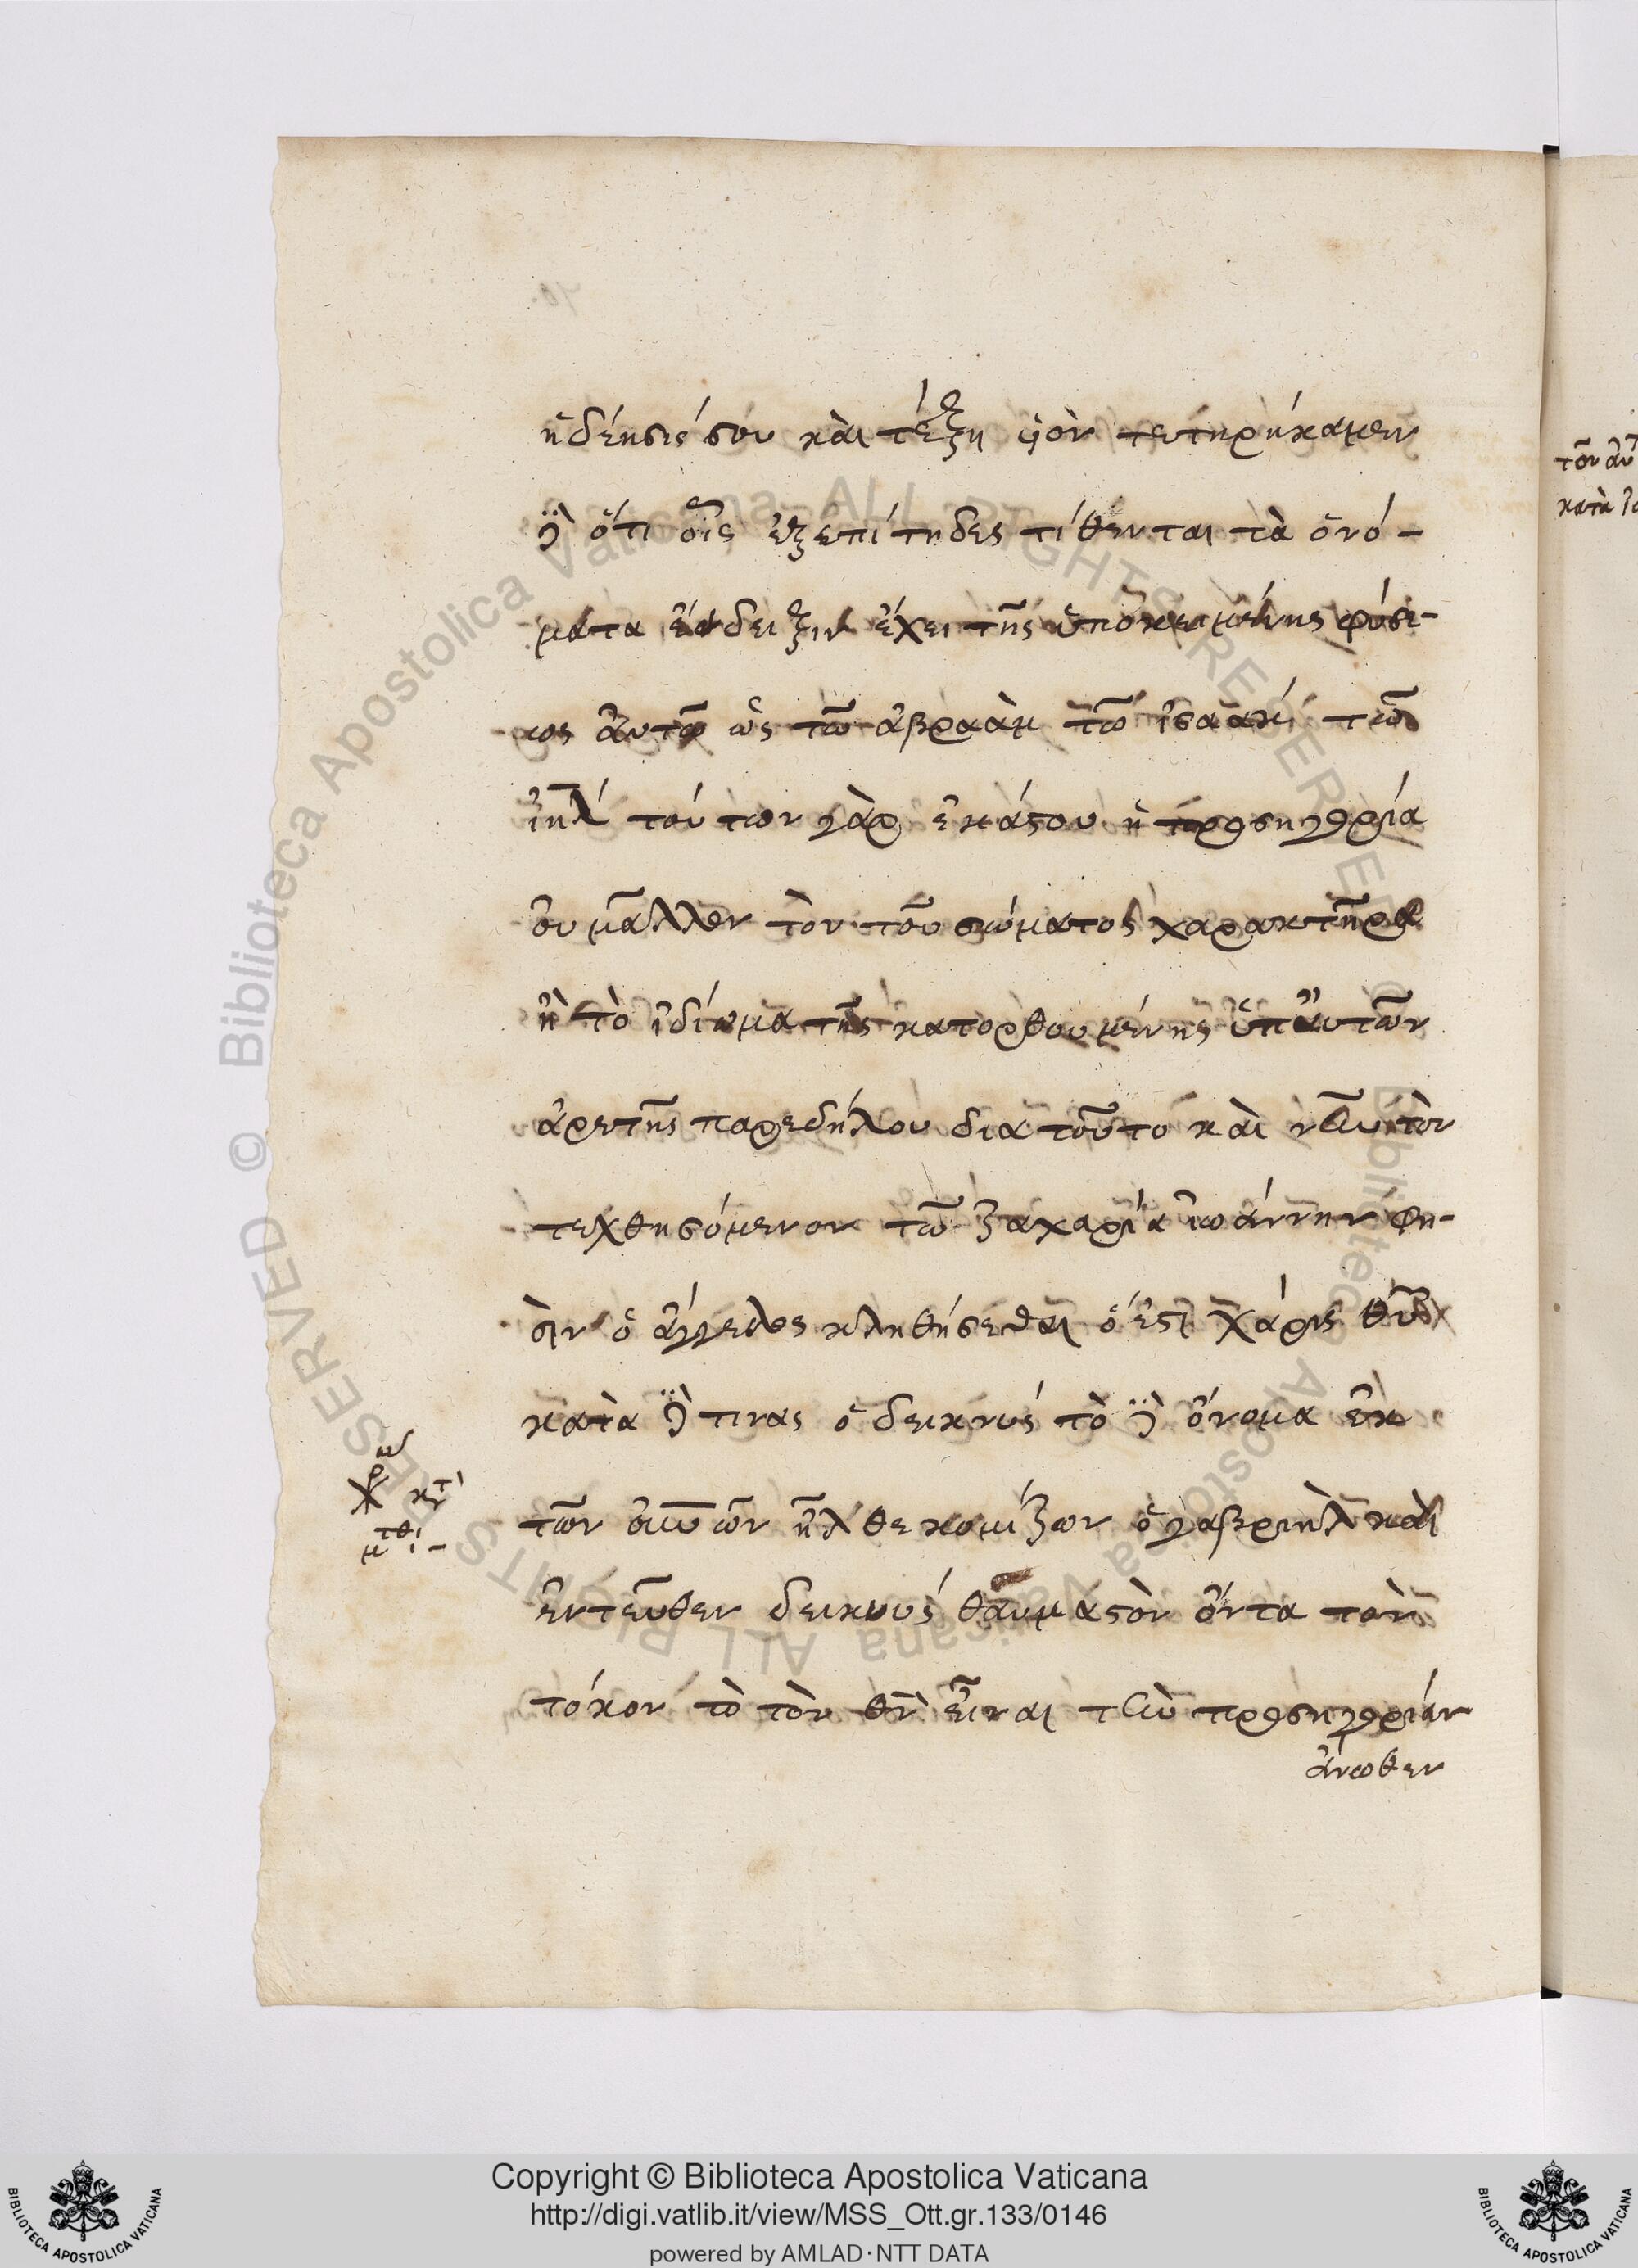 ἡ δέησίς σου καὶ τέξη ὑὸν τετηρήκαμεν
δὲ ὅτι οἷς ἐξεπίτηδες τίθενται τὰ ὀνό-
ματα ἔνδειξιν ἔχει τῆς ὑποκειμένης φύσε-
ως αὐτῶ ὡς τῶ ἀβραὰμ τῶ ἰσαάκ τῶ
ἰηλ τούτων γὰρ ἑκάστου ἡ προσηγορία
οὐ μᾶλλον τὸν τοῦ σώματος χαρακτῆρα
ἢ τὸ ἰδίωμα τῆς κατορθουμένης ὑπ αὐτῶν
ἀρετῆς παρεδήλου διὰ τοῦτο καὶ νῦν τὸν
τεχθησόμενον τῶ ζαχαρία ἰωάννην φη-
σὶν ὁ ἄγγελος κληθήσεσθαι ὅ ἐστι χάρις θυ
κατὰ δὲ τινας ὁ δεικνύς τὸ δὲ ὄνομα ἐκ
τῶν οὐνῶν ἦλθε κομίζων ὁ γαβριὴλ καὶ
ἐντεῦθεν δεικνύς θαυμαστὸν ὄντα τὸν
τόκον τὸ τὸν θν εἶναι τὴν προσηγορίαν
ἄνωθεν
Copyright © Biblioteca Apostolica Vaticana
http://digi.vatlib.it/view/MSS_Ott.gr.133/0146
powered by AMLAD·NTT DATA